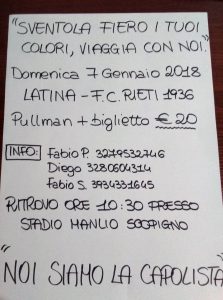 "SVENTOLA FIERO I TUOI
COLORI, VIAGGIA CON NOI."
Domenica 7 Gennaio 2018
LATINA - F.C. RIETI 1936
Pullman + biglietto € 20
INFO: Fabio P. 3279532746
Diego 3280604314
Fabio S. 3934331645
RITROVO ORE 10:30 PRESSO
STADIO MANLIO SCOPIGNO
"NOI SIAMO LA CAPOLISTA"